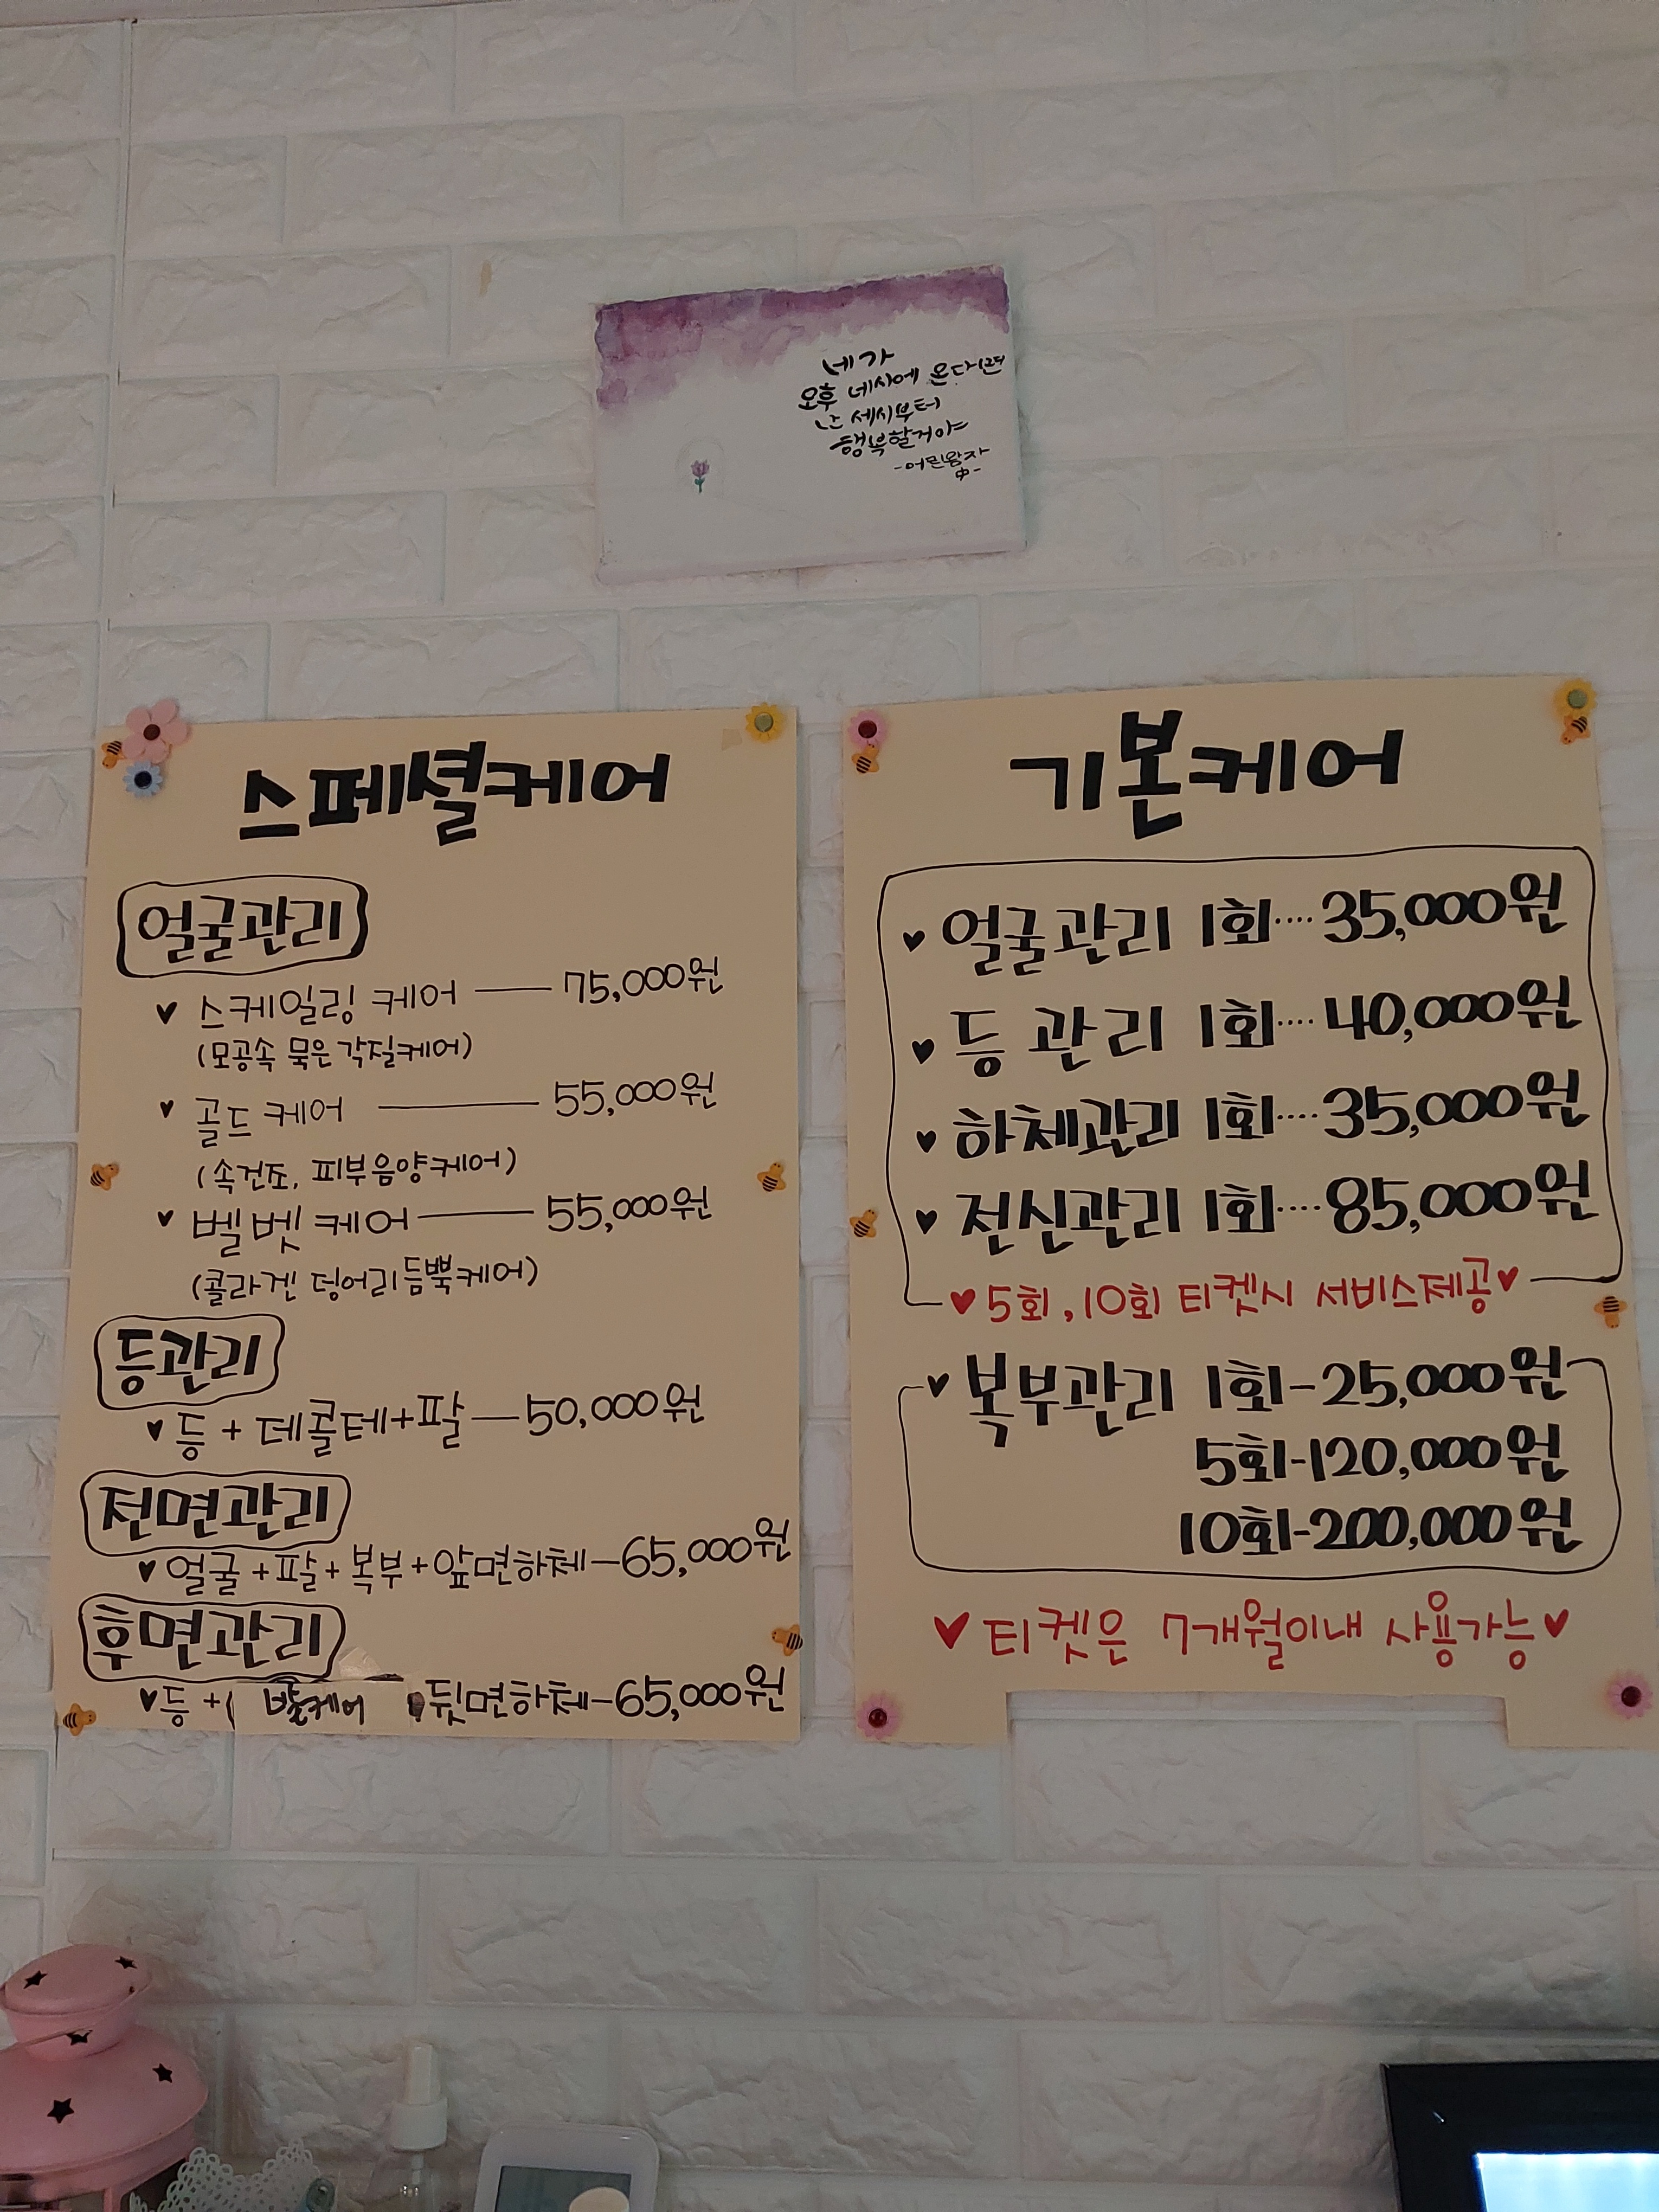 네가
오후 네시에 온다면
난 세시부터
행복할거야
-어린왕자
中-
스페셜케어
얼굴관리
♥ 스케일링 케어 — 75,000원
(모공속 묵은 각질케어)
♥ 골드 케어 — 55,000원
(속건조, 피부음양케어)
♥ 벨벳 케어 — 55,000원
(콜라겐 덩어리듬뿍케어)
등관리
♥ 등 + 데콜테+팔 — 50,000원
전면관리
♥ 얼굴 + 팔 + 복부 + 앞면하체 — 65,000원
후면관리
♥ 등 + ( 발케어 뒷면하체 — 65,000원
기본케어
♥ 얼굴관리 1회 .... 35,000원
♥ 등 관리 1회 .... 40,000원
♥ 하체관리 1회 .... 35,000원
♥ 전신관리 1회 .... 85,000원
♥ 5회, 10회 티켓시 서비스제공 ♥
♥ 복부관리 1회 - 25,000원
5회 - 120,000원
10회 - 200,000원
♥ 티켓은 7개월이내 사용가능 ♥